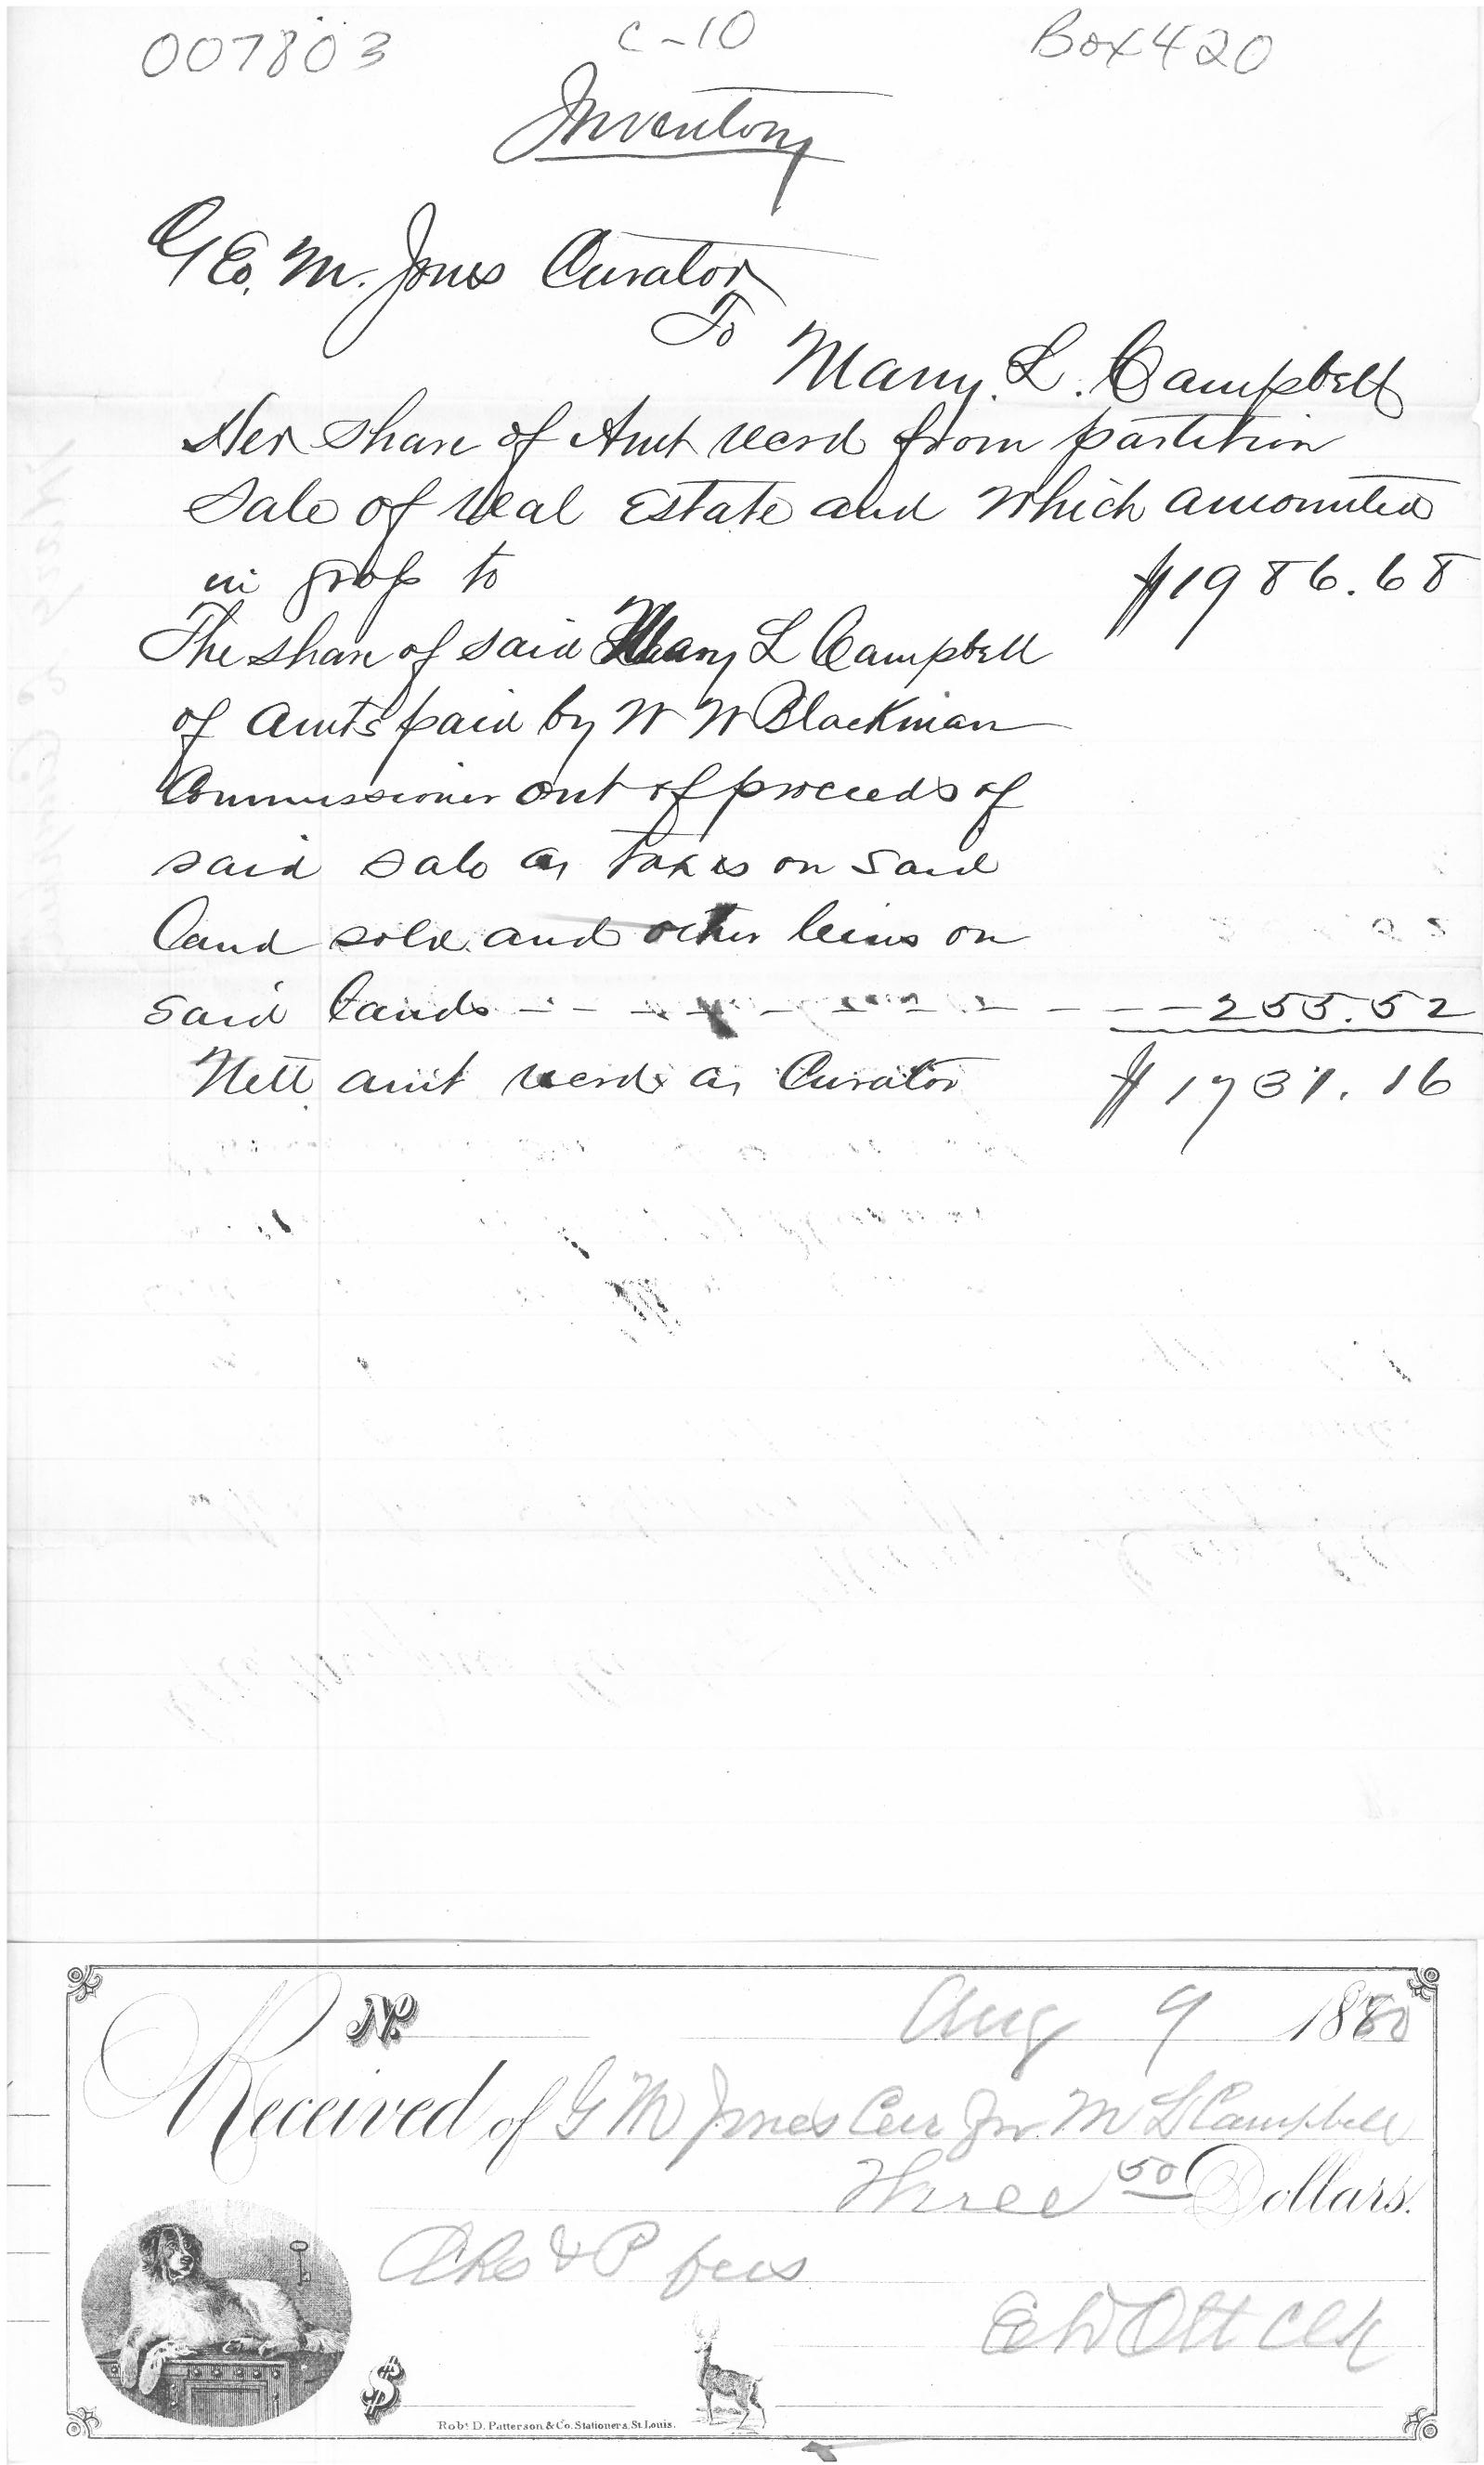 007803 C-10 Box 420
Inventory
Geo. M. Jones Curator
To
Mary. L. Campbell
Her share of Amt recd from partition
sale of real Estate and which amounted
in gross to $1986.68
The share of said Mary L Campbell
of amts paid by W W Blackman
Commissioner out of proceeds of
said sale as taxes on said
land sold and other liens on
said lands - - - - - - - - - 255.52
Nett amt recd as Curator $1731.16
No. Aug 9 1880
Received of G M Jones Cur for M L Campbell
Three 50 Dollars.
Clks & P fees
Ott Clk
$
Robt. D. Patterson & Co. Stationers, St. Louis.